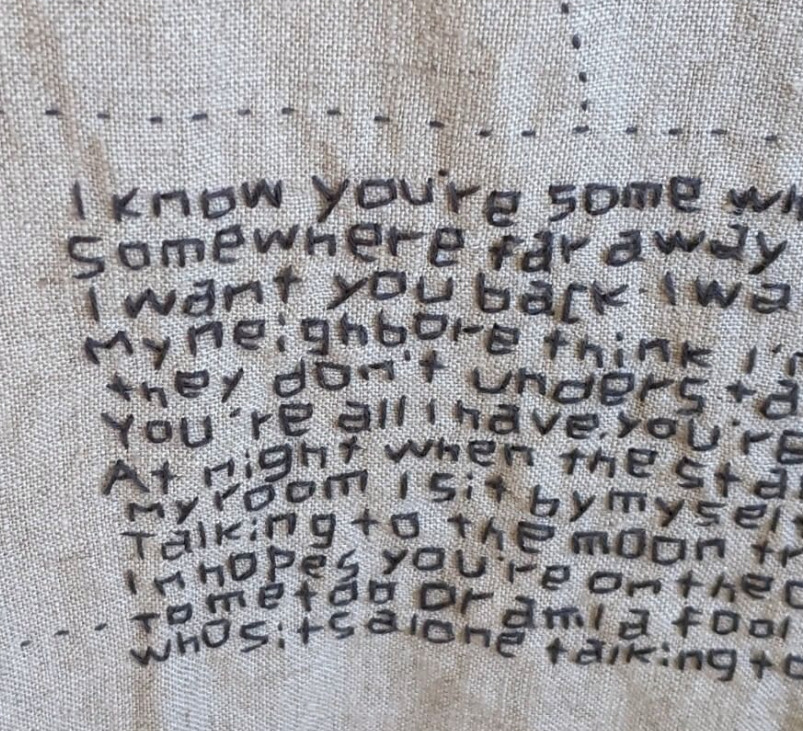 I know you're some wh
Somewhere far away
I want you back I wa
My neighbore think I'm
they don't understa
You're all I have you're
At night when the sta
my room I sit by myself
Talking to the moon tr
In hopes you're on the o
to me too Or am I a fool
who sits alone talking to